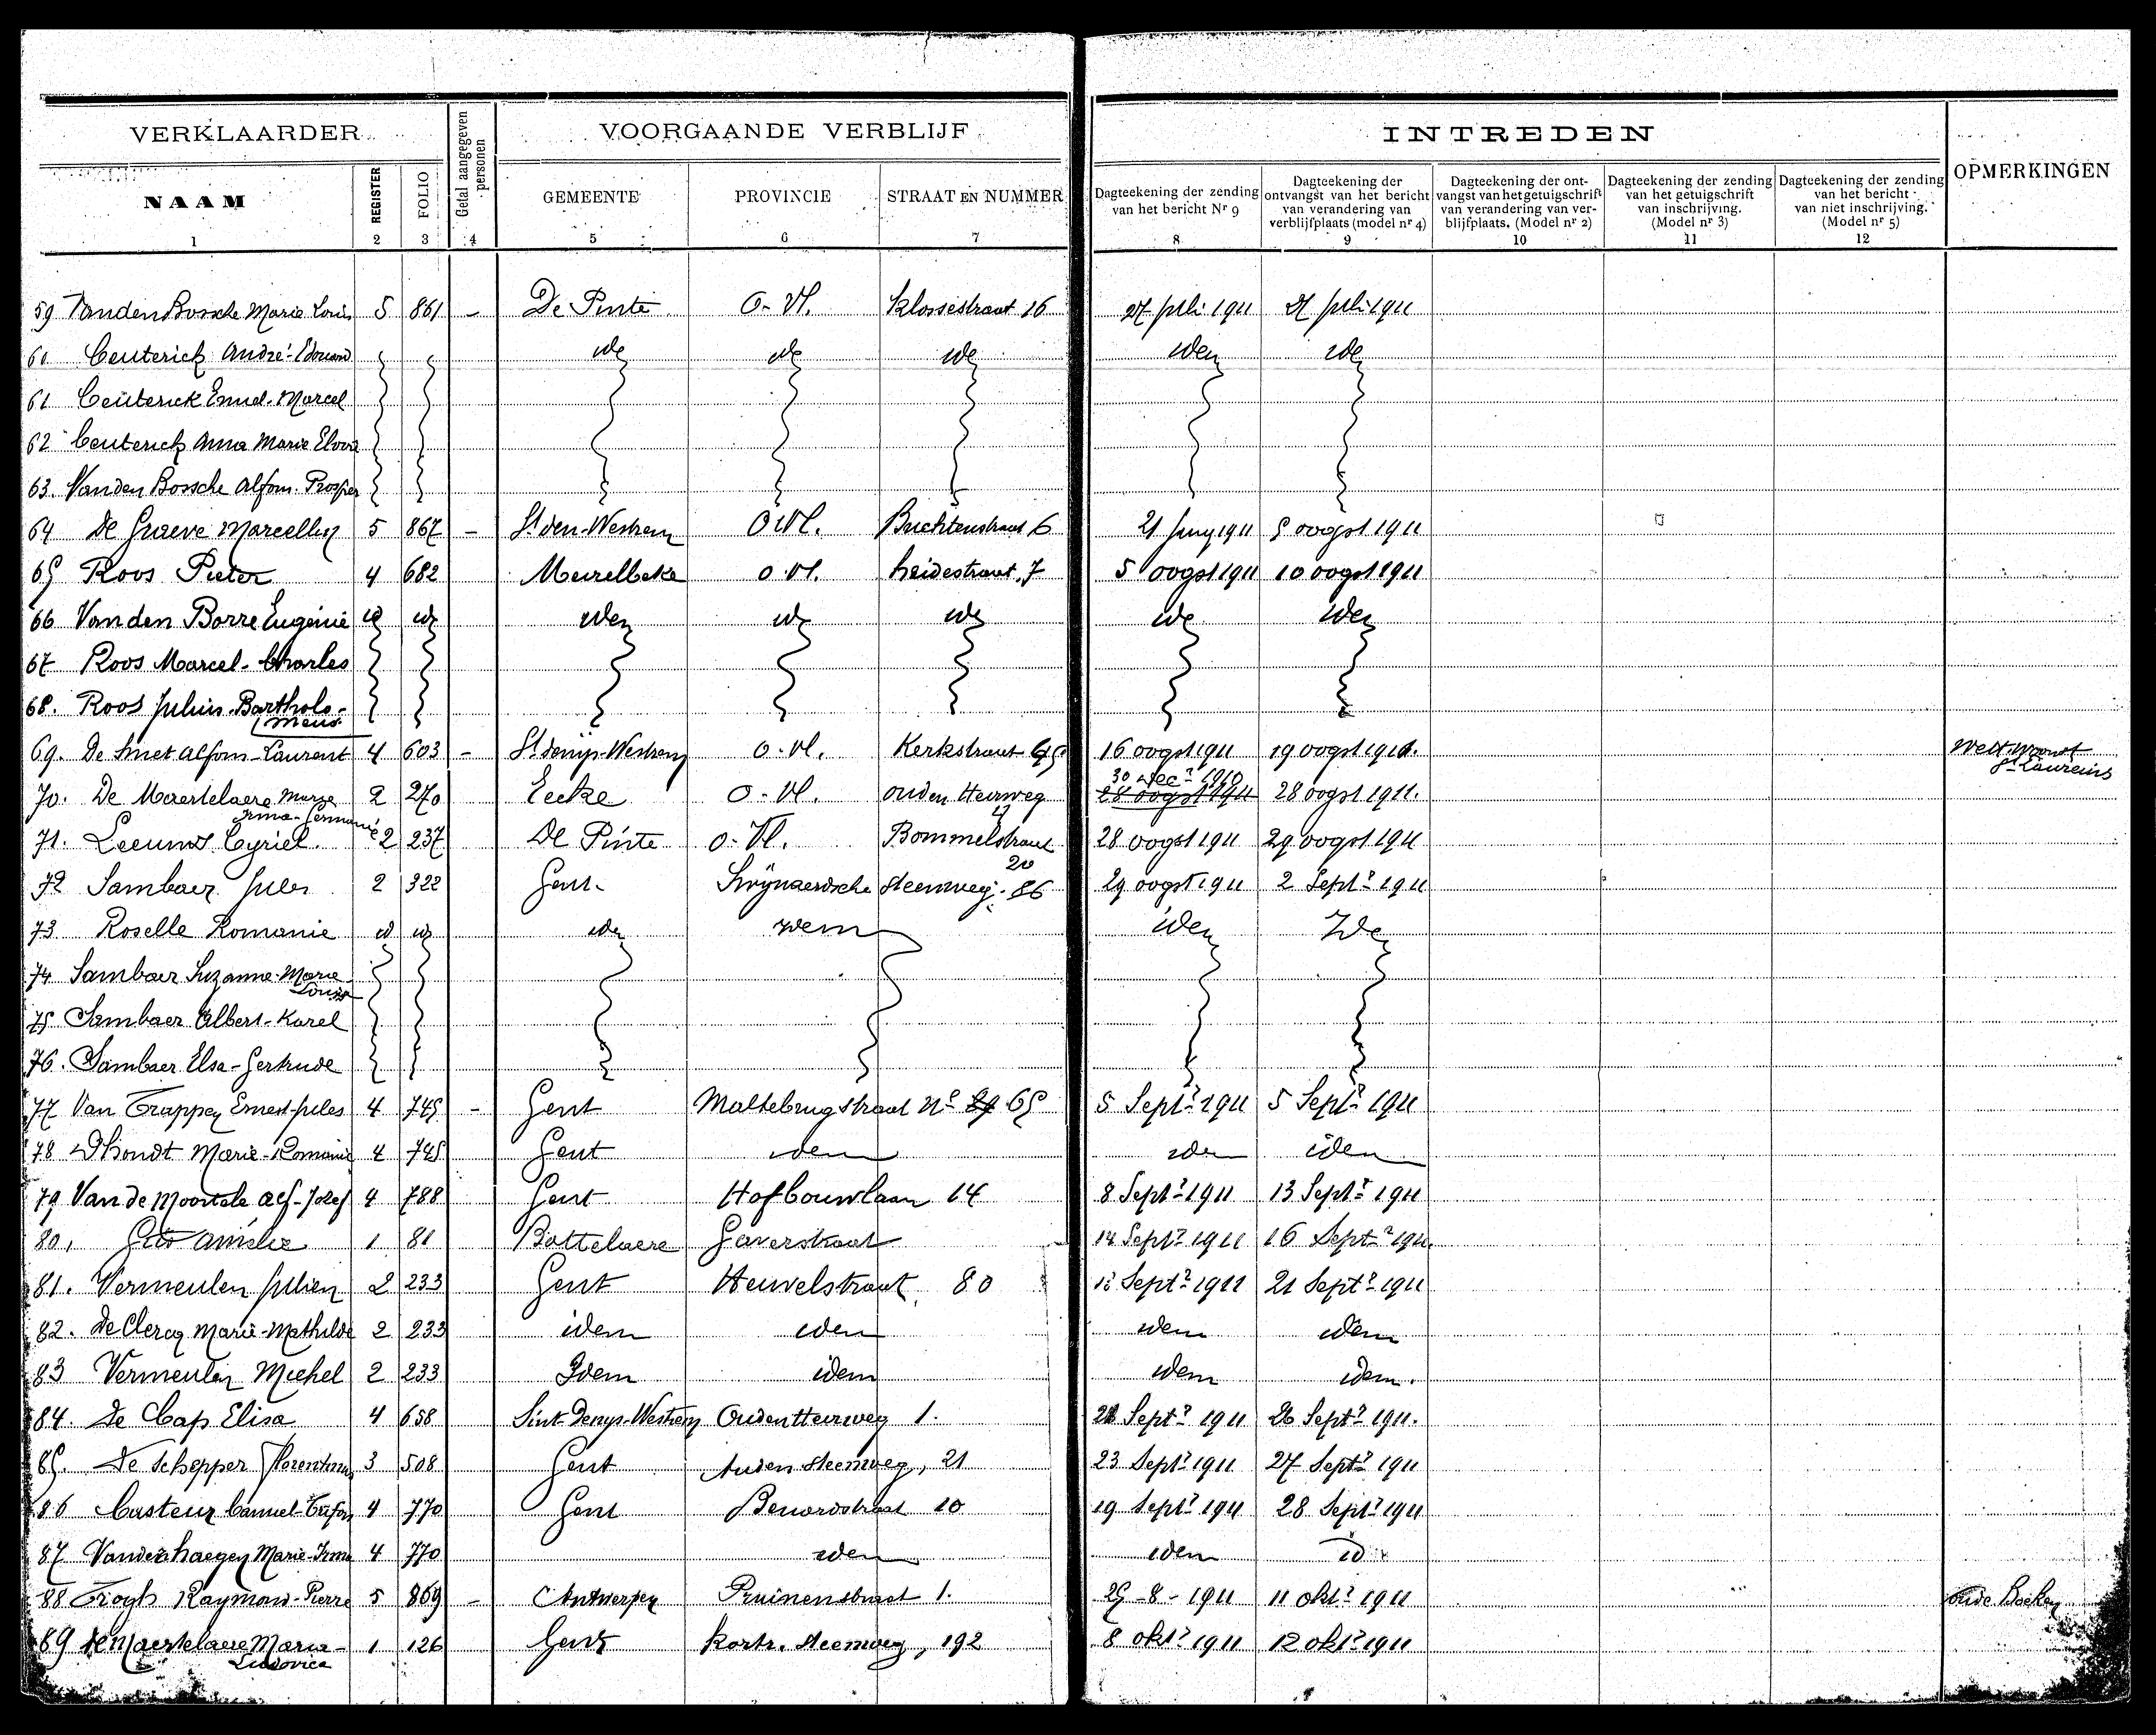 VERKLAARDER
Getal aangegeven personen
VOORGAANDE VERBLIJF
INTREDEN
OPMERKINGEN
NAAM
REGISTER
FOLIO
GEMEENTE
PROVINCIE
STRAAT EN NUMMER
Dagteekening der zending van het bericht Nr 9
Dagteekening der ontvangst van het bericht van verandering van verblijfplaats (model nr 4)
Dagteekening der ont-vangst van het getuigschrift van verandering van ver-blijfplaats. (Model nr 2)
Dagteekening der zending van het getuigschrift van inschrijving. (Model nr 3)
Dagteekening der zending van het bericht van niet inschrijving. (Model nr 5)
1 2 3 4 5 6 7 8 9 10 11 12
59 Vanden Bossche Marie Louis 5 861 - De Pinte O-Vl. Klossestraat 16 27 juli 1911 juli 1911
60 Ceuterick André-Edouard
61 Ceuterick Emiel-Marcel
62 Ceuterick Anna Marie
63. Vanden Bossche Alfons. Prosper
64 De Graeve Marcellin 5 867 - O.Vl. 6 21 Juny 1911 5 oogst 1911
65 Roos Pieter 4 682 Meirelbeke O.Vl. heidestraat, 7 5 oogst 1911 10 oogst 1911
66 Van den Borre Eugenie
67 Roos Marcel-Charles
68. Roos Julius-Bartholo-meus
69. De Smet Alfons-Laurent 4 603 - St denijs-Westrem O-Vl. Kerkstraat 16 oogst 1911 19 oogst 1911.
70. De Maertelaere Marie Irma-Germanie 2 270 Eecke O-Vl. ouden Heirweg 30 Dec 1910 28 oogst 1911 28 oogst 1911.
71. Leeuws Cyriel. 2 237 De Pinte O-Vl. Bommelstraat 20 28 oogst 1911 29 oogst 1911
72 Sambaer Jules 2 322 Gent. Swijnaerdsche Steenweg. 86 29 oogst 1911 2 Sept 1911
73 Roselle Romanie idem
74 Sambaer Suzanne-Marie Louise
75 Sambaer Albert-Karel
76. Sambaer Elsa-Gertrude
77 Van Trappen Ernest-Jules 4 745 - Gent Maltebrugstraat No 65 5 Sept 1911 5 Sept 1911
78 Dhondt Marie-Romanie 4 745 Gent iden iden iden
79 Van de Moortele Alf-Jozef 4 788 Gent Hofbouwlaan 14 8 Sept 1911 13 Sept 1911
80, Amelie 1 81 Bottelaere Gaverstraat 14 Sept 1911 16 Sept 1911.
81. Vermeulen Julien 2 233 Gent Heuvelstraat 80 Sept 1911 21 Sept 1911
82. De Clercq Marie-Mathilde 2 233 idem idem idem idem
83 Vermeulen Michel 2 233 Idem idem idem idem.
84. De Cap Elisa 4 658 Sint-Denys-Westrem Ouden Heirweg 1. Sept 1911 26 Sept 1911.
85. De Schepper Florentina 3 508 Gent Steenweg, 21 23 Sept 1911 27 Sept 1911
86 Casteur Camiel 4 770 Gent 10 19 Sept 1911 28 Sept 1911
87 Vanderhaegen Marie-Irma 4 770 iden idem id
88 Trogh Raymond-Pierre 5 869 - Antwerpen Pruinenstraat 1. 25-8-1911 11 okt 1911 oude Boeken
89 De Maertelaere Maria-Ludovica 1 126 Gent Kortr. Steenweg, 192 8 okt 1911 12 okt 1911